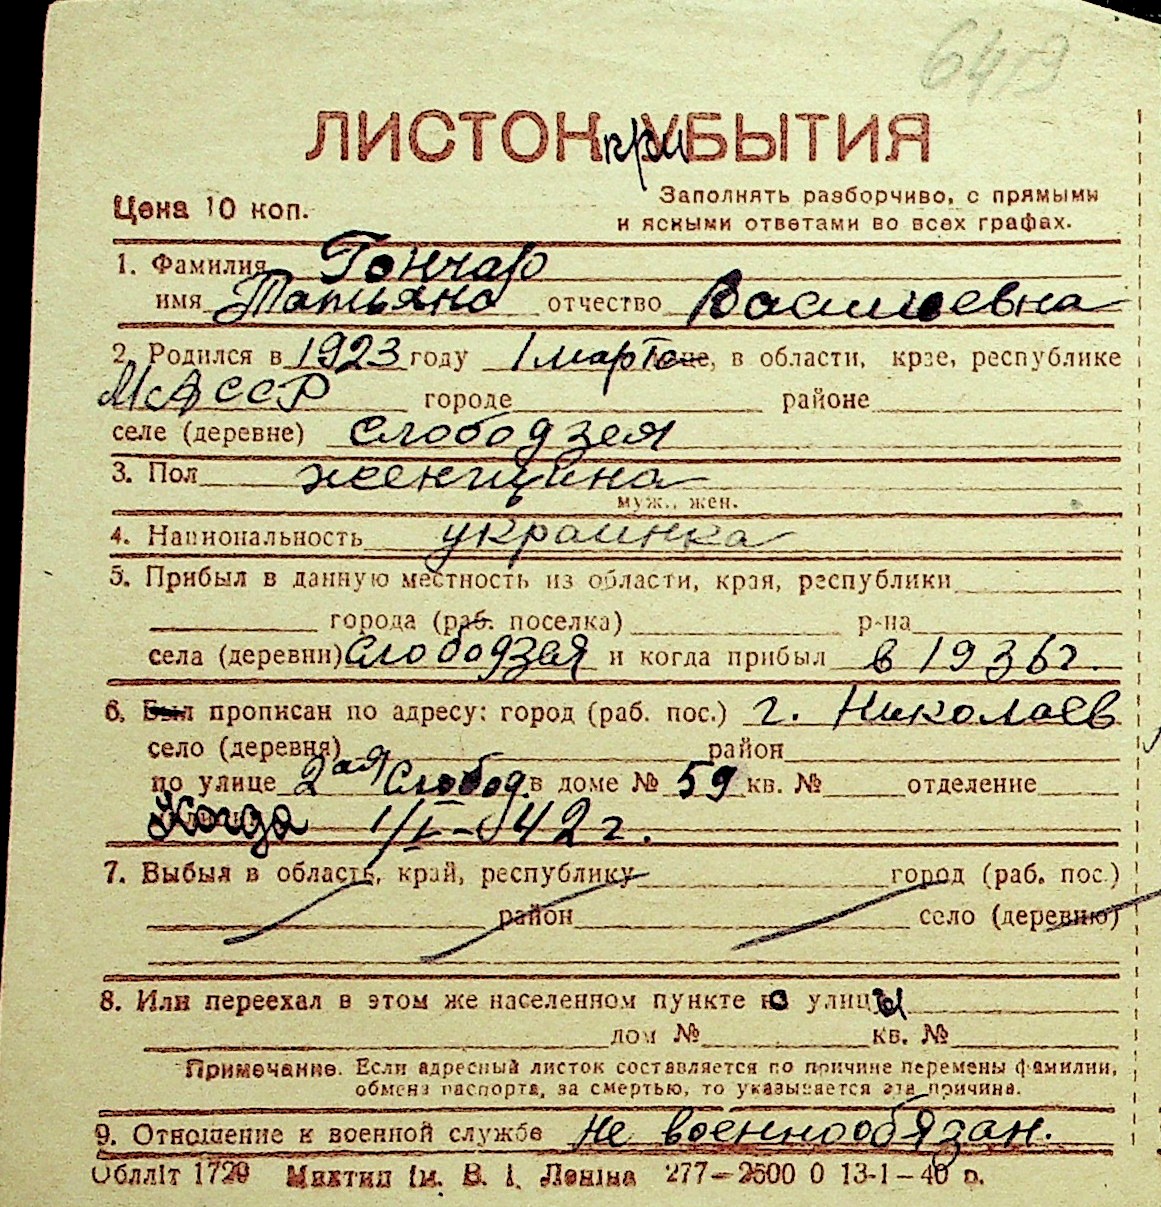 6419
ЛИСТОКприБЫТИЯ
Цена 10 коп.
Заполнять разборчиво, с прямыми
и ясными ответами во всех графах.
1. Фамилия Гончар
имя Татьяна отчество Васильевна
2. Родился в 1923 году 1 марта, в области, крае, республике
МАССР городе районе
селе (деревне) Слободзея
3. Пол женщина
муж., жен.
4. Национальность украинка
5. Прибыл в данную местность из области, края, республики
города (раб. поселка) р-на
села (деревни) Слободзея и когда прибыл в 1936 г.
6. Был прописан по адресу: город (раб. пос.) г. Николаев
село (деревня) район
по улице 2ая Слобод. в доме № 59 кв. № отделение
Когда 1/I-42 г.
7. Выбыл в область, край, республику город (раб. пос.)
район село (деревню)
8. Или переехал в этом же населенном пункте с улицы
дом № кв. №
Примечание. Если адресный листок составляется по причине перемены фамилии,
обмена паспорта, за смертью, то указывается эта причина.
9. Отношение к военной службе не военнообязан.
Облліт 1729 Миктип ім. В. І. Леніна 277–2500 0 13-1–40 р.